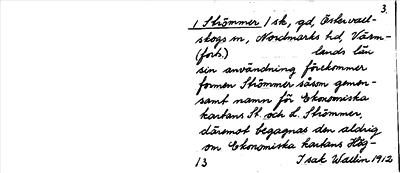 3.
1 Strömmer / sk, gd, Östervall-
skogs sn, Nordmarks hd, Värm-
(forts.) lands län
sin användning förekommer
formen Strömmer såsom gemen-
samt namn för Ekonomiska
kartans St. och L. Strömmer,
däremot begagnas den aldrig
om Ekonomiska kartans Hög-
13 Isak Wallin 1912